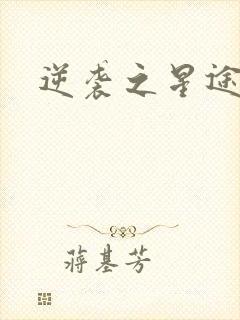 逆袭之星途
蒋基芳